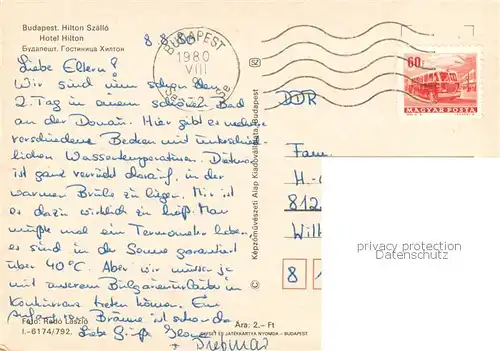 Budapest. Hilton Szálló
Hotel Hilton
Будапешт. Гостиница Хилтон
8. 8. 80
BUDAPEST
1980
VIII
60f
MAGYAR POSTA
Liebe Eltern!
Wir sind nun schon den
2. Tag in einem schönen Bad
an der Donau. Hier gibt es mehrere
verschiedene Becken mit unterschied-
lichen Wassertemperaturen. Dietmar
ist ganz verrückt darauf, in der
warmen Brühe zu liegen. Mir ist
es dazu wirklich zu heiß. Man
müßte mal ein Termometer haben,
es sind in der Sonne garantiert
über 40°C. Aber wir müssen ja
mit anderen Bulgarienurlaubern in
Konkurrenz treten können. Ein
Bräune ist schon da.
Liebe Grüße
+ Dietmar
DDR
Fam.
H.-
812
Wil
8 1
privacy protection
VDRMA
Képzőművészeti Alap Kiadóvállalata, Budapest
Fotó: Radó László
I.-6174/792.
Ára: 2.- Ft
OFFSET ÉS JÁTÉKKÁRTYA NYOMDA - BUDAPEST